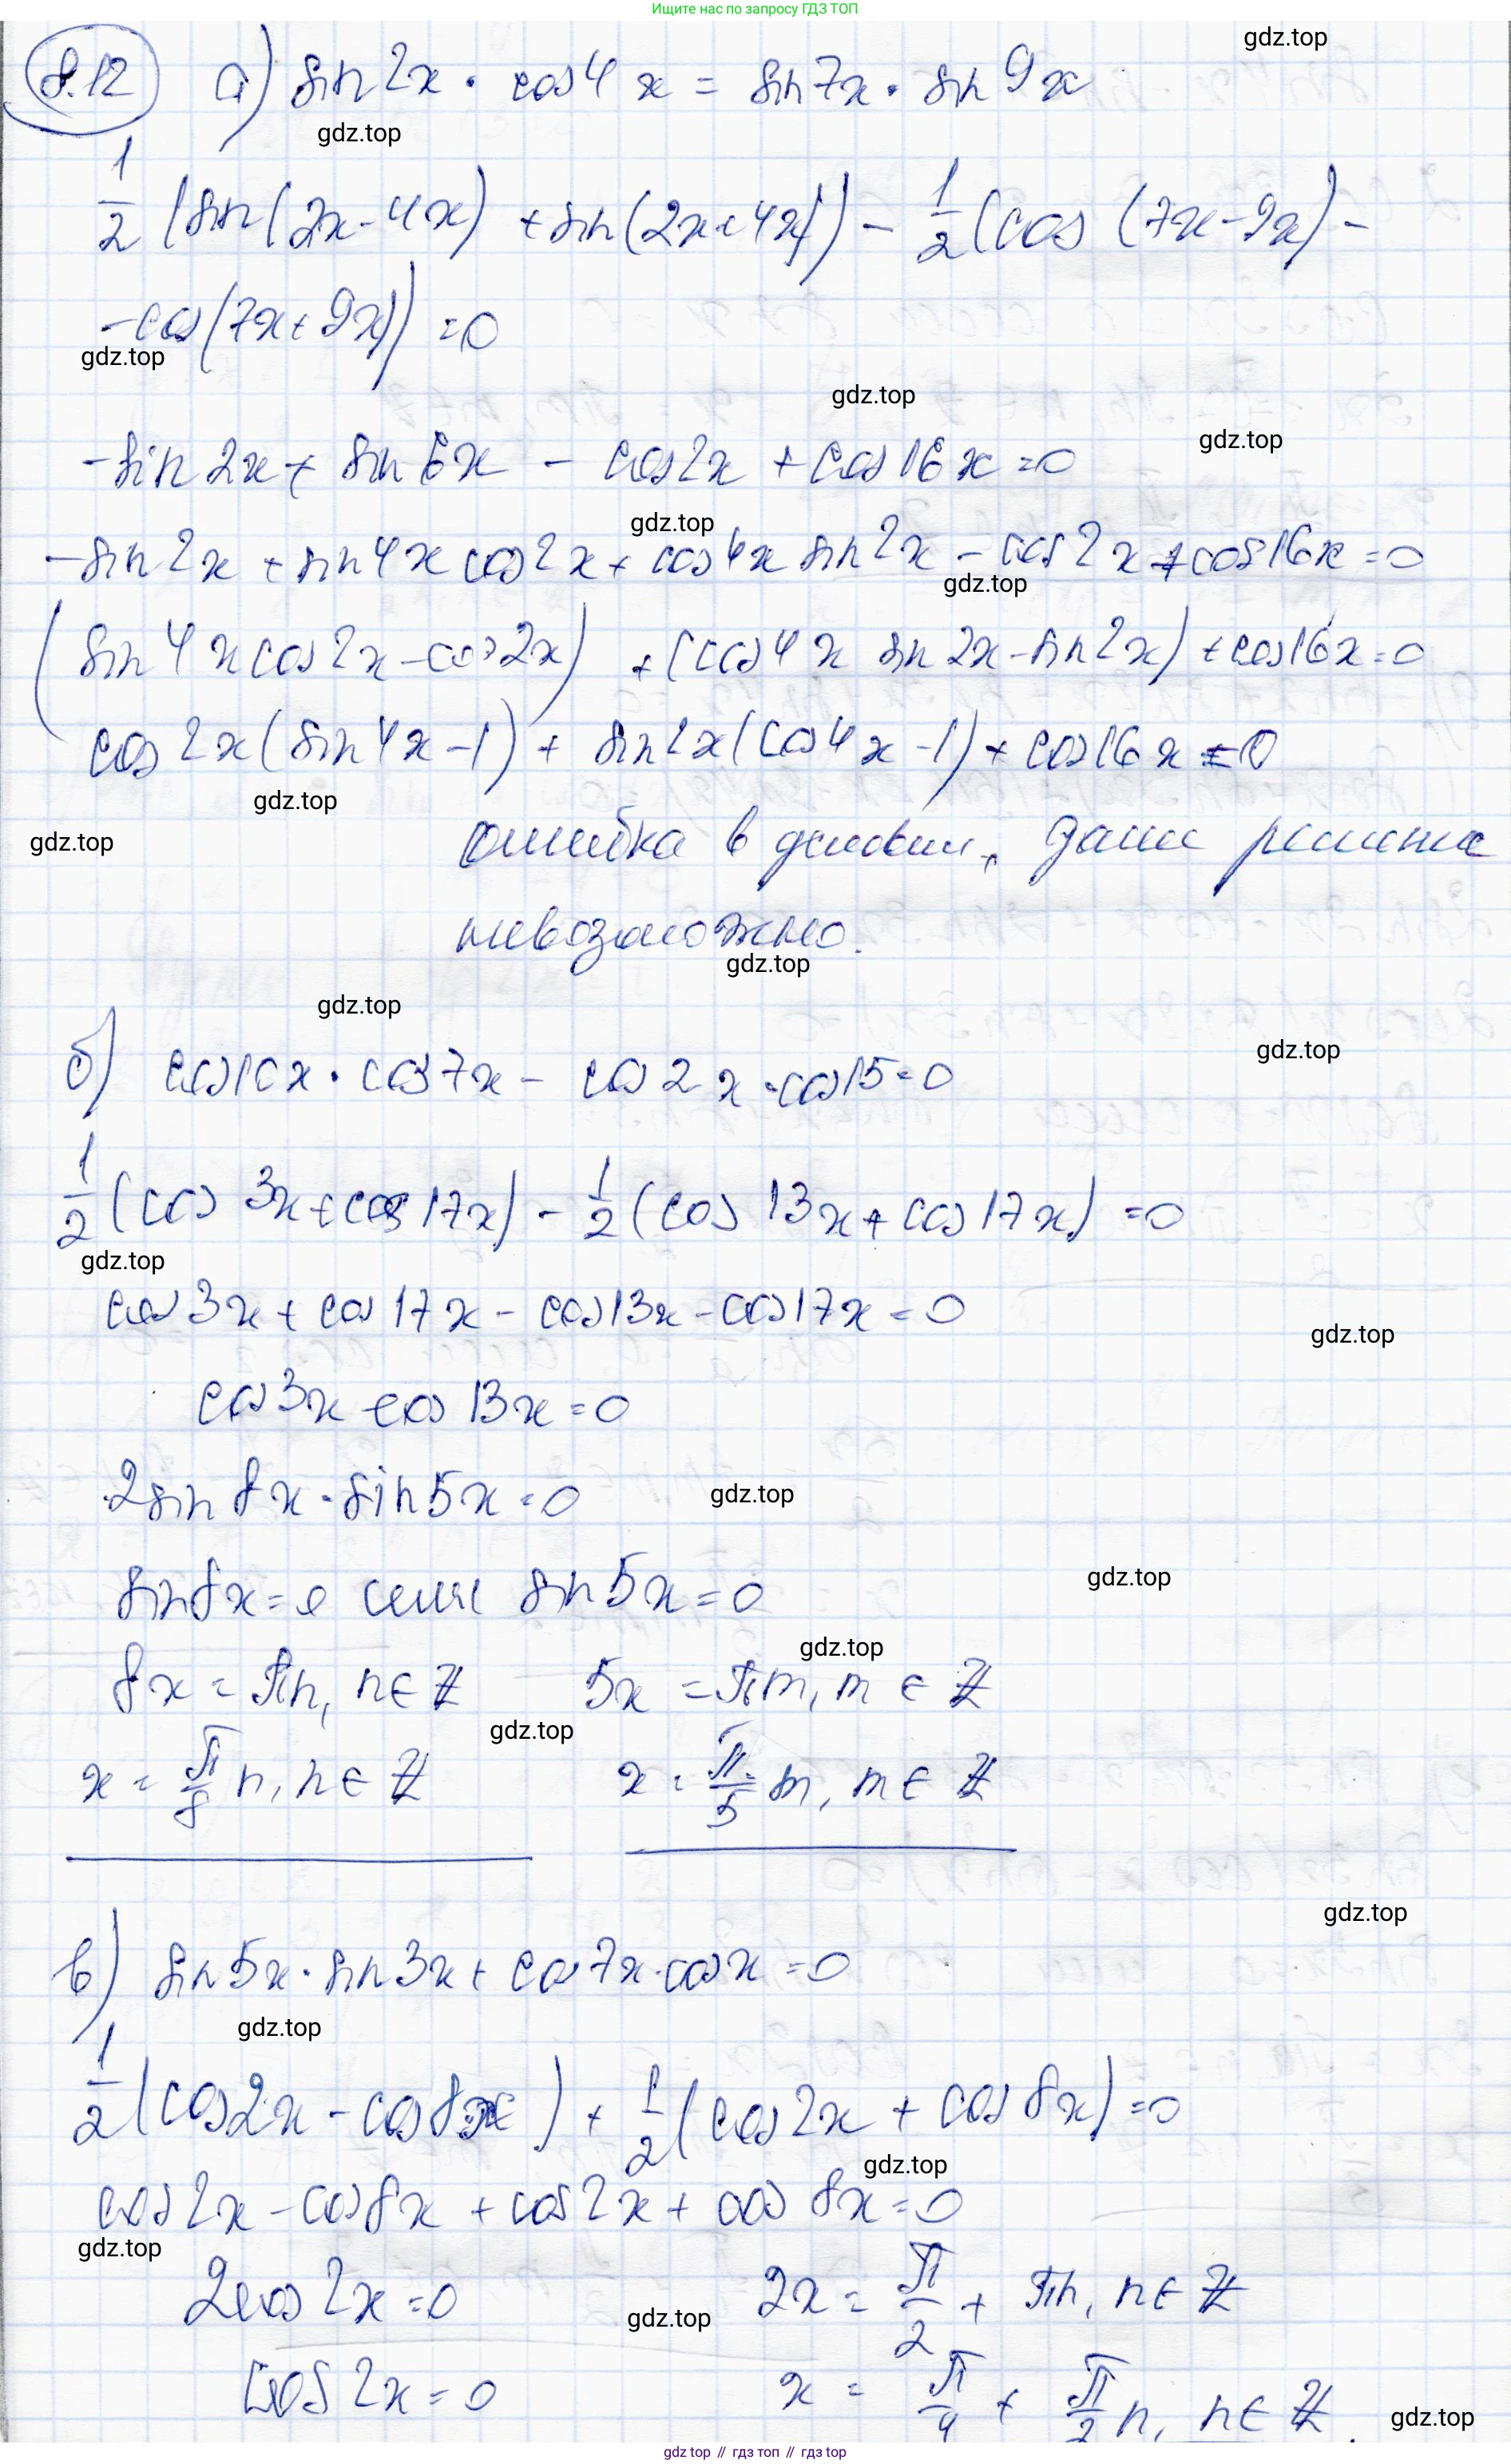 Ищите нас по запросу ГДЗ ТОП
gdz.top
8.12 а) sin 2x · cos 4x = sin 7x · sin 9x
gdz.top
1/2 (sin(2x-4x) + sin(2x+4x)) - 1/2 (cos (7x-9x) -
- cos(7x+9x)) = 0
gdz.top
gdz.top
gdz.top
- sin 2x + sin 6x - cos 2x + cos 16x = 0
gdz.top
- sin 2x + sin 4x cos 2x + cos 4x sin 2x - cos 2x + cos 16x = 0
gdz.top
(sin 4x cos 2x - cos 2x) + (cos 4x sin 2x - sin 2x) + cos 16x = 0
cos 2x (sin 4x - 1) + sin 2x (cos 4x - 1) + cos 16x = 0
gdz.top
gdz.top
ошибка в условии, далее решение
невозможно.
gdz.top
gdz.top
gdz.top
б) cos 10x · cos 7x - cos 2x · cos 15 = 0
1/2 (cos 3x + cos 17x) - 1/2 (cos 13x + cos 17x) = 0
gdz.top
cos 3x + cos 17x - cos 13x - cos 17x = 0
gdz.top
cos 3x - cos 13x = 0
2 sin 8x · sin 5x = 0
gdz.top
sin 8x = 0 или sin 5x = 0
gdz.top
gdz.top
8x = πn, n ∈ Z 5x = πm, m ∈ Z
gdz.top
x = π/8 n, n ∈ Z x = π/5 m, m ∈ Z
gdz.top
в) sin 5x · sin 3x + cos 7x · cos x = 0
gdz.top
1/2 (cos 2x - cos 8x) + 1/2 (cos 2x + cos 8x) = 0
gdz.top
cos 2x - cos 8x + cos 2x + cos 8x = 0
gdz.top
2 cos 2x = 0 2x = π/2 + πn, n ∈ Z
gdz.top
cos 2x = 0 x = π/4 + π/2 n, n ∈ Z.
gdz.top
gdz.top // гдз топ // гдз.top